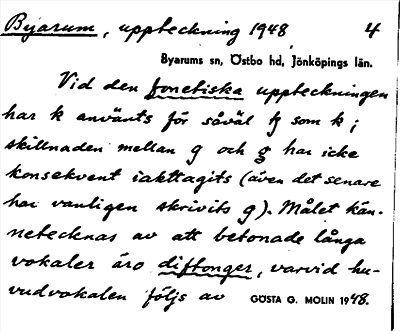 Byarum, uppteckning 1948 4
Byarums sn, Östbo hd, Jönköpings län.
Vid den fonetiska uppteckningen
har k använts för såväl ꞣ som k;
skillnaden mellan g och g har icke
konsekvent iakttagits (även det senare
har vanligen skrivits g). Målet kän-
netecknas av att betonade långa
vokaler äro diftonger, varvid hu-
vudvokalen följs av GÖSTA G. MOLIN 1948.